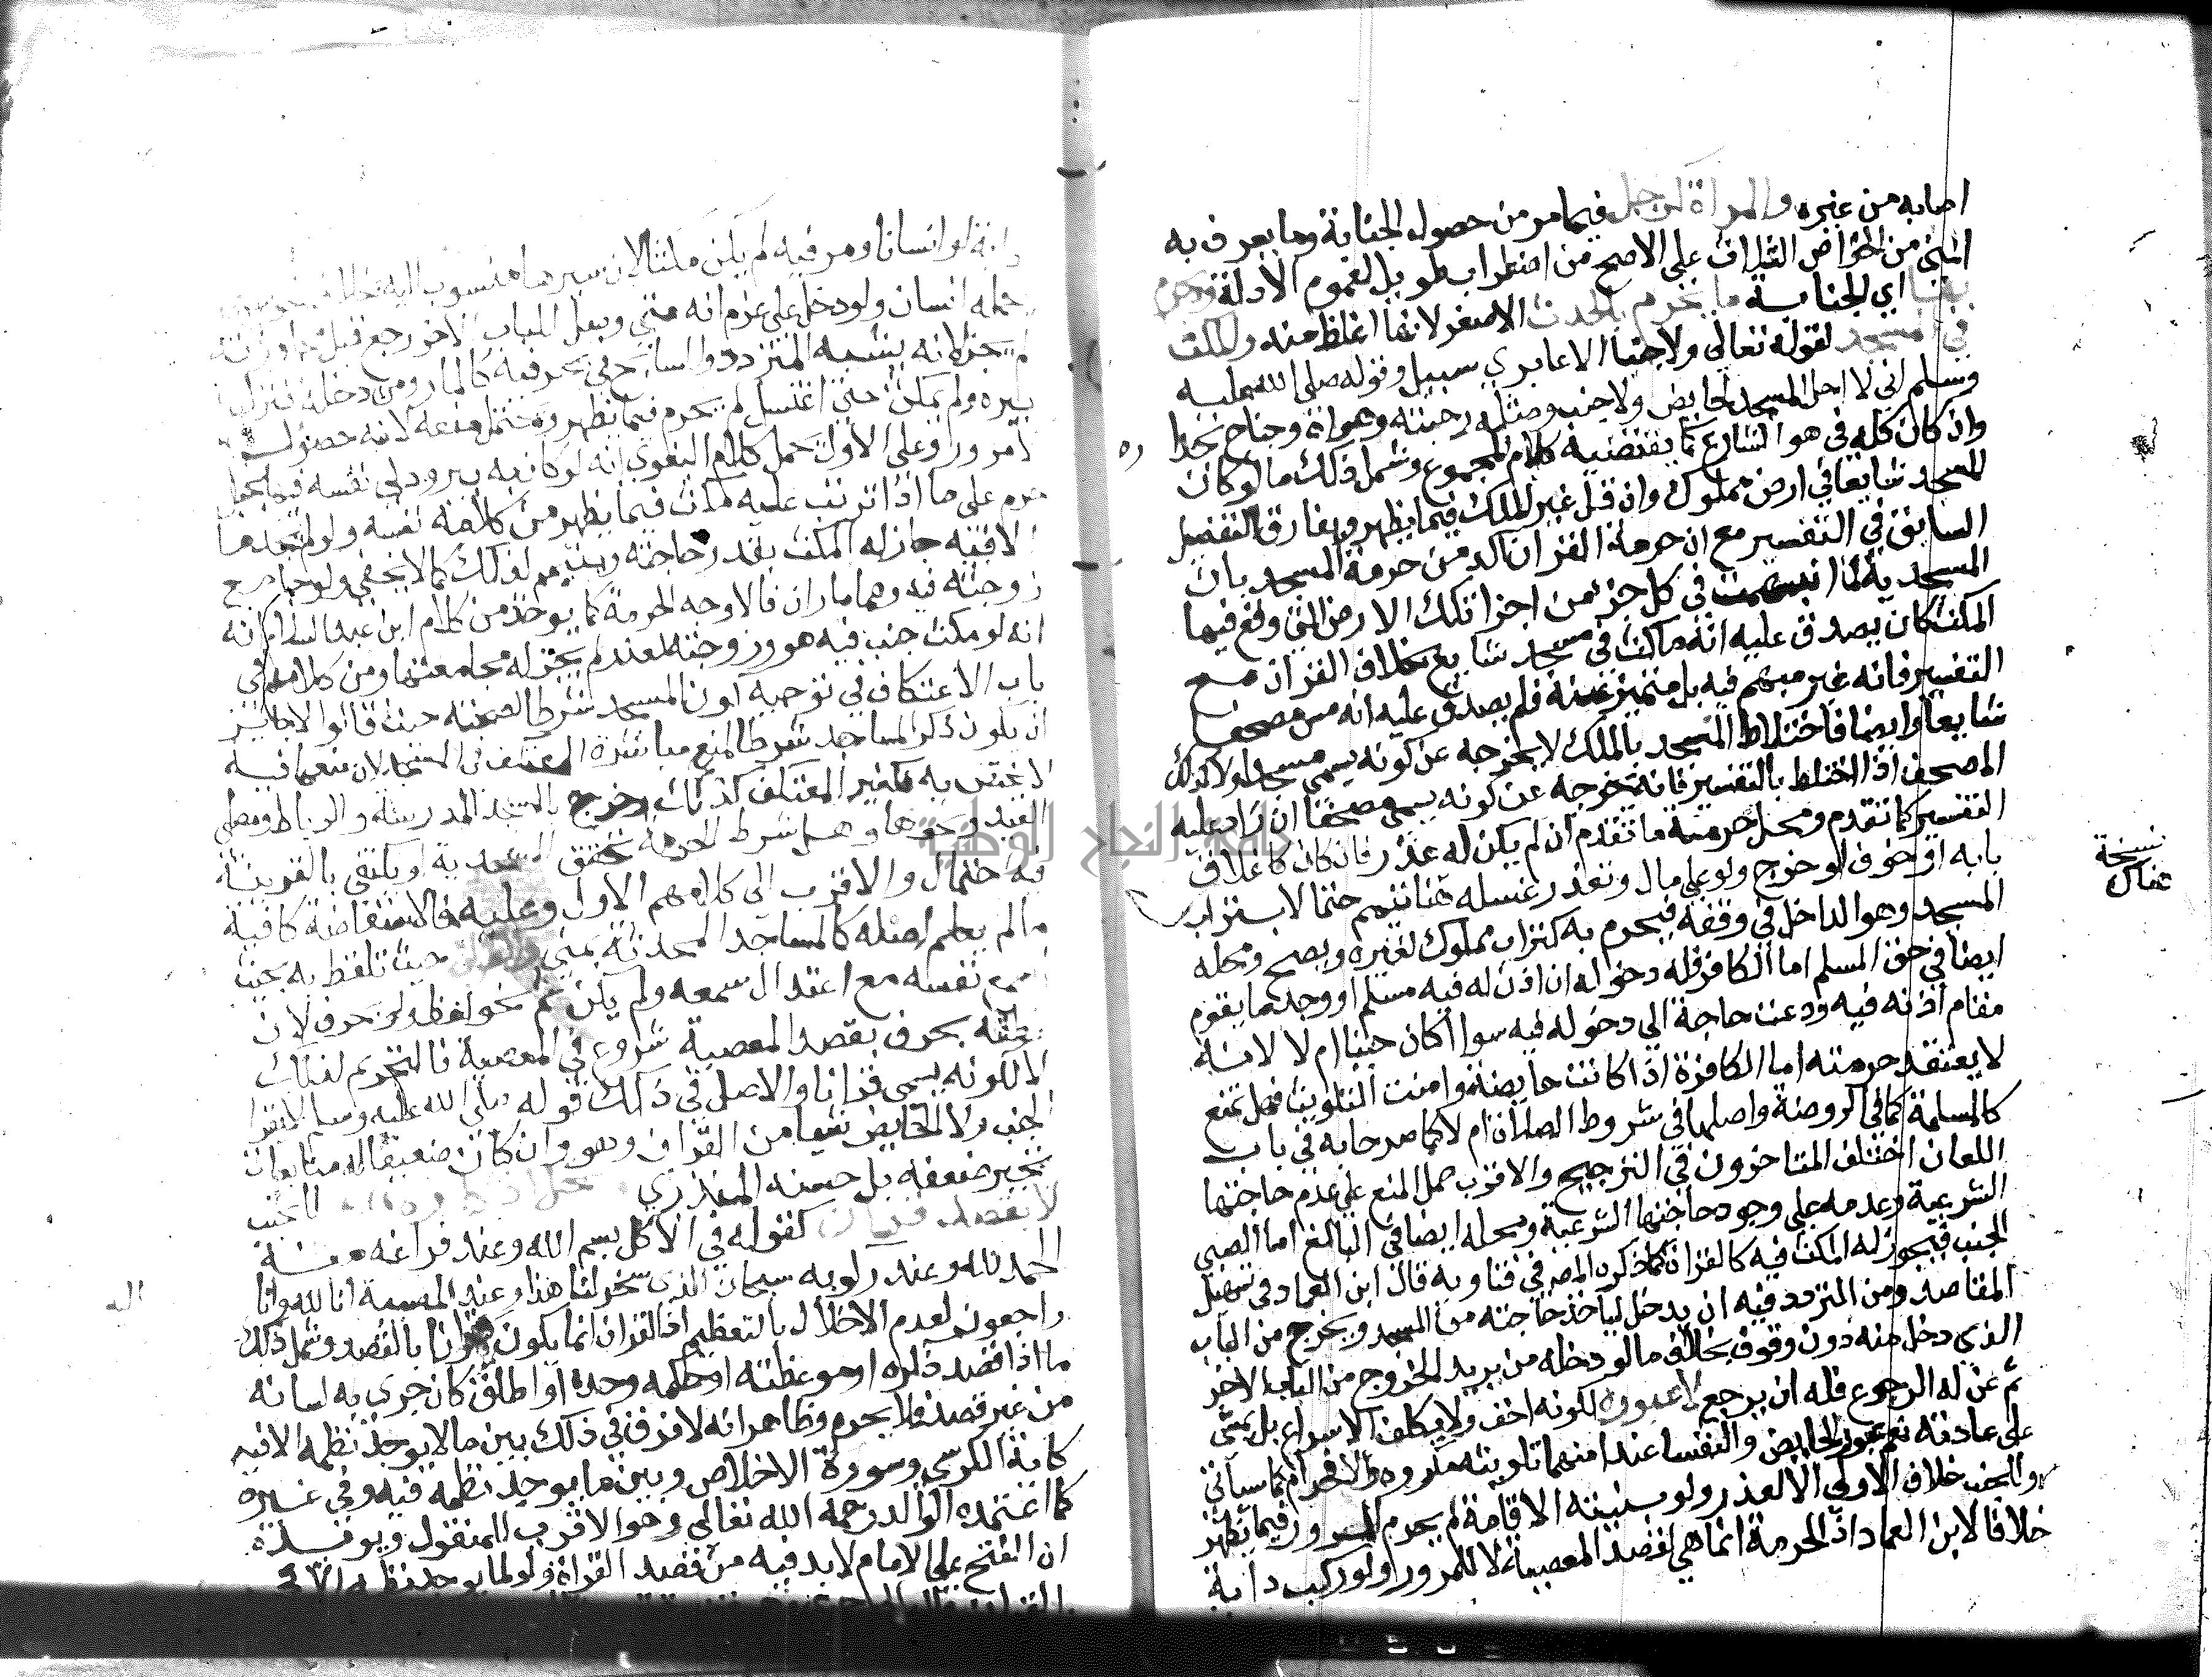 اصابه من غيره والمراة كرجل فيما مر من حصول الجنابة وما يعرف به
المني من الخواص الثلاث على الاصح من اضطراب طويل لعموم الادلة ويحرم
بها اي الجنابة ما يحرم بالحدث الاصغر لانها اغلظ منه والمكث
في المسجد لقوله تعالى ولا جنبا الا عابري سبيل وقوله صلى الله عليه
وسلم اني لا احل المسجد لحايض ولا جنب ومثله رحبته وهواه وجناح بجداره
وان كان كله في هوا الشارع كما يقتضيه كلام المجموع وشمل ذلك ما لو كان
المسجد شايعا في ارض مملوك وان قل غير الملك فيما يظهر ويفارق التفصيل
السابق في التفسير مع ان حرمة القران اكد من حرمة المسجد بان
المسجدية لما انبهمت في كل جزء من اجزا تلك الارض التي وقع فيها
المكث كان يصدق عليه انه ماكث في مسجد شايع بخلاف القران مع
التفسير فانه غير مبهم فيه بل متميز عنه فلم يصدق عليه انه مس مصحفا
شايعا وايضا فاختلاط المسجد بالملك لا يخرجه عن كونه يسمى مسجدا ولا كذلك
المصحف اذا اختلط بالتفسير فانه يخرجه عن كونه يسمى مصحفا ان زاد عليه
التفسير كما تقدم ومحل حرمة ما تقدم ان لم يكن له عذر فان كان كاغلاق
بابه او خوف لو خرج ولو على مال وتعذر غسله هنا تيمم حتما لا بتراب
المسجد وهو الداخل في وقفه فيحرم به كتراب مملوك لغيره ويصح ومحله
ايضا في حق المسلم اما الكافر فله دخوله ان اذن له فيه مسلم او وجد ما يقوم
مقام اذنه فيه ودعت حاجة الى دخوله فيه سوا اكان جنبا ام لا لانه
لا يعتقد حرمته اما الكافرة اذا كانت حايضة وامنت التلويث فهل تمنع
كالمسلمة كما في الروضة واصلها في شروط الصلاة ام لا كما صرحا به في باب
اللعان اختلف المتاخرون في الترجيح والاقرب حمل المنع على عدم حاجتها
الشرعية وعدمه على وجود حاجتها الشرعية ومحله ايضا في البالغ اما الصبي
الجنب فيجوز له المكث فيه كالقران كما ذكره المص في فتاويه قال ابن العماد في تسهيل
المقاصد ومن التردد فيه ان يدخل لياخذ حاجته من المسجد ويخرج من الباب
الذي دخل منه دون وقوف بخلاف ما لو دخله من يريد الخروج من الباب الاخر
ثم عن له الرجوع فله ان يرجع لا عبوره لكونه اخف ولا يكلف الاسراع بل يمشي
على عادته نعم عبور الحايض والنفسا عند امنهما تلويثه مكروه والا فحرام كما سياتي
والجنب خلاف الاولى الا لعذر ولو بنيته الاقامة لم يحرم المرور فيما يظهر
خلافا لابن العماد اذ الحرمة انما هي لقصد المعصية لا للمرور او لو ركب دابة
نسخة
هناك
دابة لو انسانا ومر فيه لم يكن مكثا لان سيرها منسوب اليه بخلاف
يحمله انسان ولو دخل على عزم انه متى وصل للباب الاخر رجع قبل مجاوزته
لم يجز لانه يشبه التردد والسابح في نهر فيه كالمار ومن دخله فنزل
بيره ولم يمكث حتى اغتسل لم يحرم فيما يظهر ويحتمل منعه لانه حصول
لا مرور وعلى الاول حمل كلام البغوي انه لو كان به بير ودلى نفسه فيها بحبل
حرم على ما اذا ترتب عليه مكث فيما يظهر من كلامه نفسه ولو لم يجد ماء
الا فيه جاز له المكث بقدر حاجته ويتيمم لذلك كما لا يخفى ولو جامع
زوجته فيه وهما ماران فالاوجه الحرمة كما يوخذ من كلام ابن عبد السلام انه
انه لو مكث جنب فيه هو وزوجته لعذر لم يجز له مجامعتها ومن كلامهم في
باب الاعتكاف في توجيه كون المسجد شرطا لصحته حيث قالوا لا جايز
ان يكون ذكر المساجد شرطا لمنع مباشرة المعتكف في المسجد لان منعها فيه
لا يختص به فغير المعتكف كذلك وخرج بالمسجد المدرسة والرباط ومصلى
العيد ونحوها وهل شرط الحرمة تحقق المسجدية او يكتفى بالقرينة
فيه احتمال والاقرب الى كلامهم الاول وعليه فالاستفاضة كافية
ما لم يعلم اصله كالمساجد المحدثة بمنى والقران حيث تلفظ به بحيث
اسمع نفسه مع اعتدال سمعه ولم يكن ثم نحو لغط ولو حرف لان
نطقه بحرف بقصد المعصية شروع في المعصية فالتحريم لذلك
لا لكونه يسمى قرانا والاصل في ذلك قوله صلى الله عليه وسلم لا يقرا
الجنب ولا الحايض شيا من القران وهو وان كان ضعيفا له متابعات
تجبر ضعفه بل حسنه المنذري
لا بقصد قران كقوله في الاكل بسم الله وعند فراغه منه
الحمد لله وعند ركوبه سبحان الذي سخر لنا هذا وعند المصيبة انا لله وانا
راجعون لعدم الاخلال بالتعظيم اذ القران انما يكون قرانا بالقصد وشمل ذلك
ما اذا قصد ذكره او موعظته او حكمه وحده او اطلق كان جرى به لسانه
من غير قصد فلا يحرم وظاهره انه لا فرق في ذلك بين ما لا يوجد نظمه الا فيه
كاية الكرسي وسورة الاخلاص وبين ما يوجد نظمه فيه وفي غيره
كما اعتمده الوالد رحمه الله تعالى وهو الاقرب للمنقول ويويده
ان الفتح على الامام لا بد فيه من قصد القراة ولو لما يوجد نظمه الا في